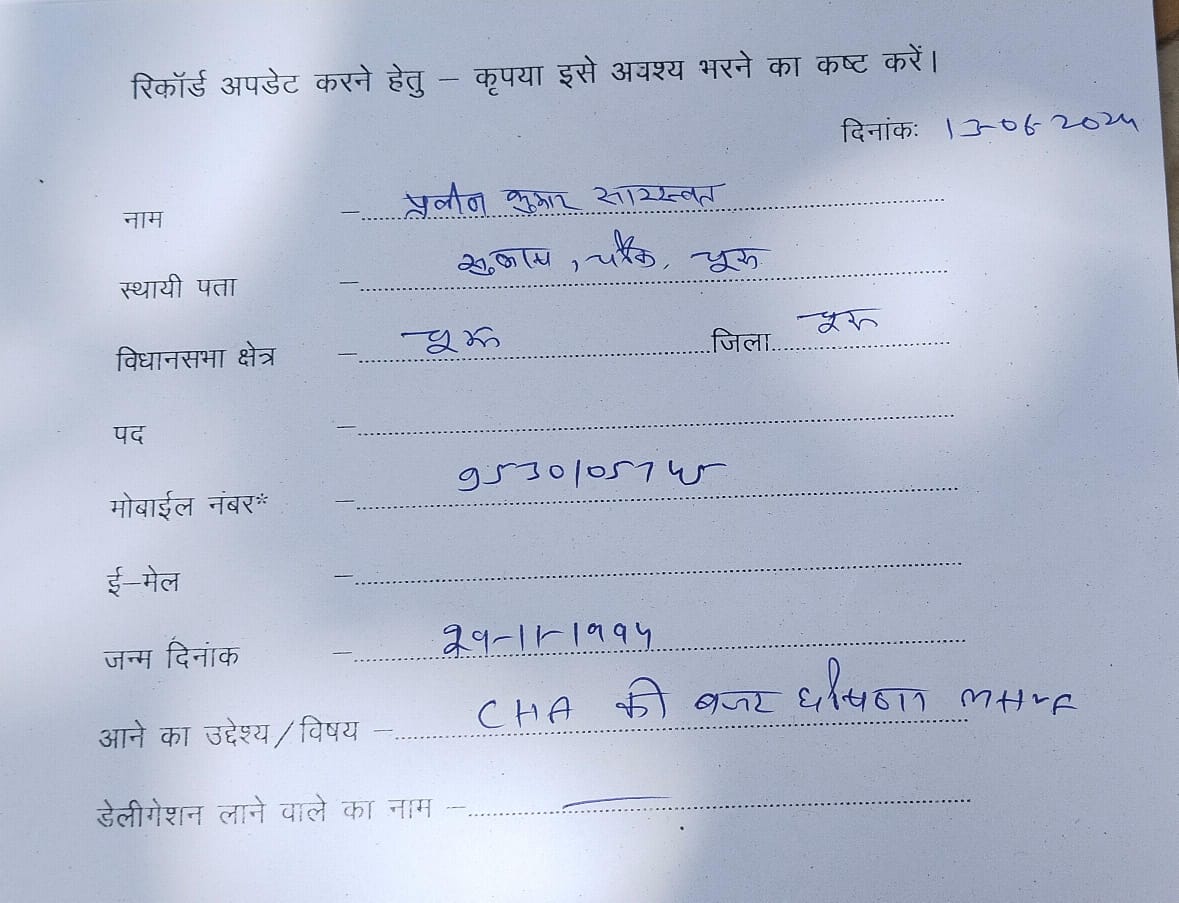 रिकॉर्ड अपडेट करने हेतु – कृपया इसे अवश्य भरने का कष्ट करें।
दिनांकः 13-06-2024
नाम – प्रवीन कुमार सारस्वत
स्थायी पता – चूरू
विधानसभा क्षेत्र – चूरू जिला चूरू
पद –
मोबाईल नंबर* – 9530105745
ई–मेल –
जन्म दिनांक – 29-11-1994
आने का उद्देश्य/विषय – CHA की बजट घोषणा
डेलीगेशन लाने वाले का नाम –